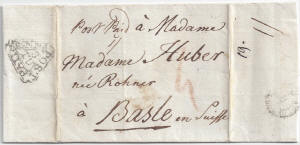 Post Paid à Madame
Madame Huber
née Rohner
à Basle en Suisse